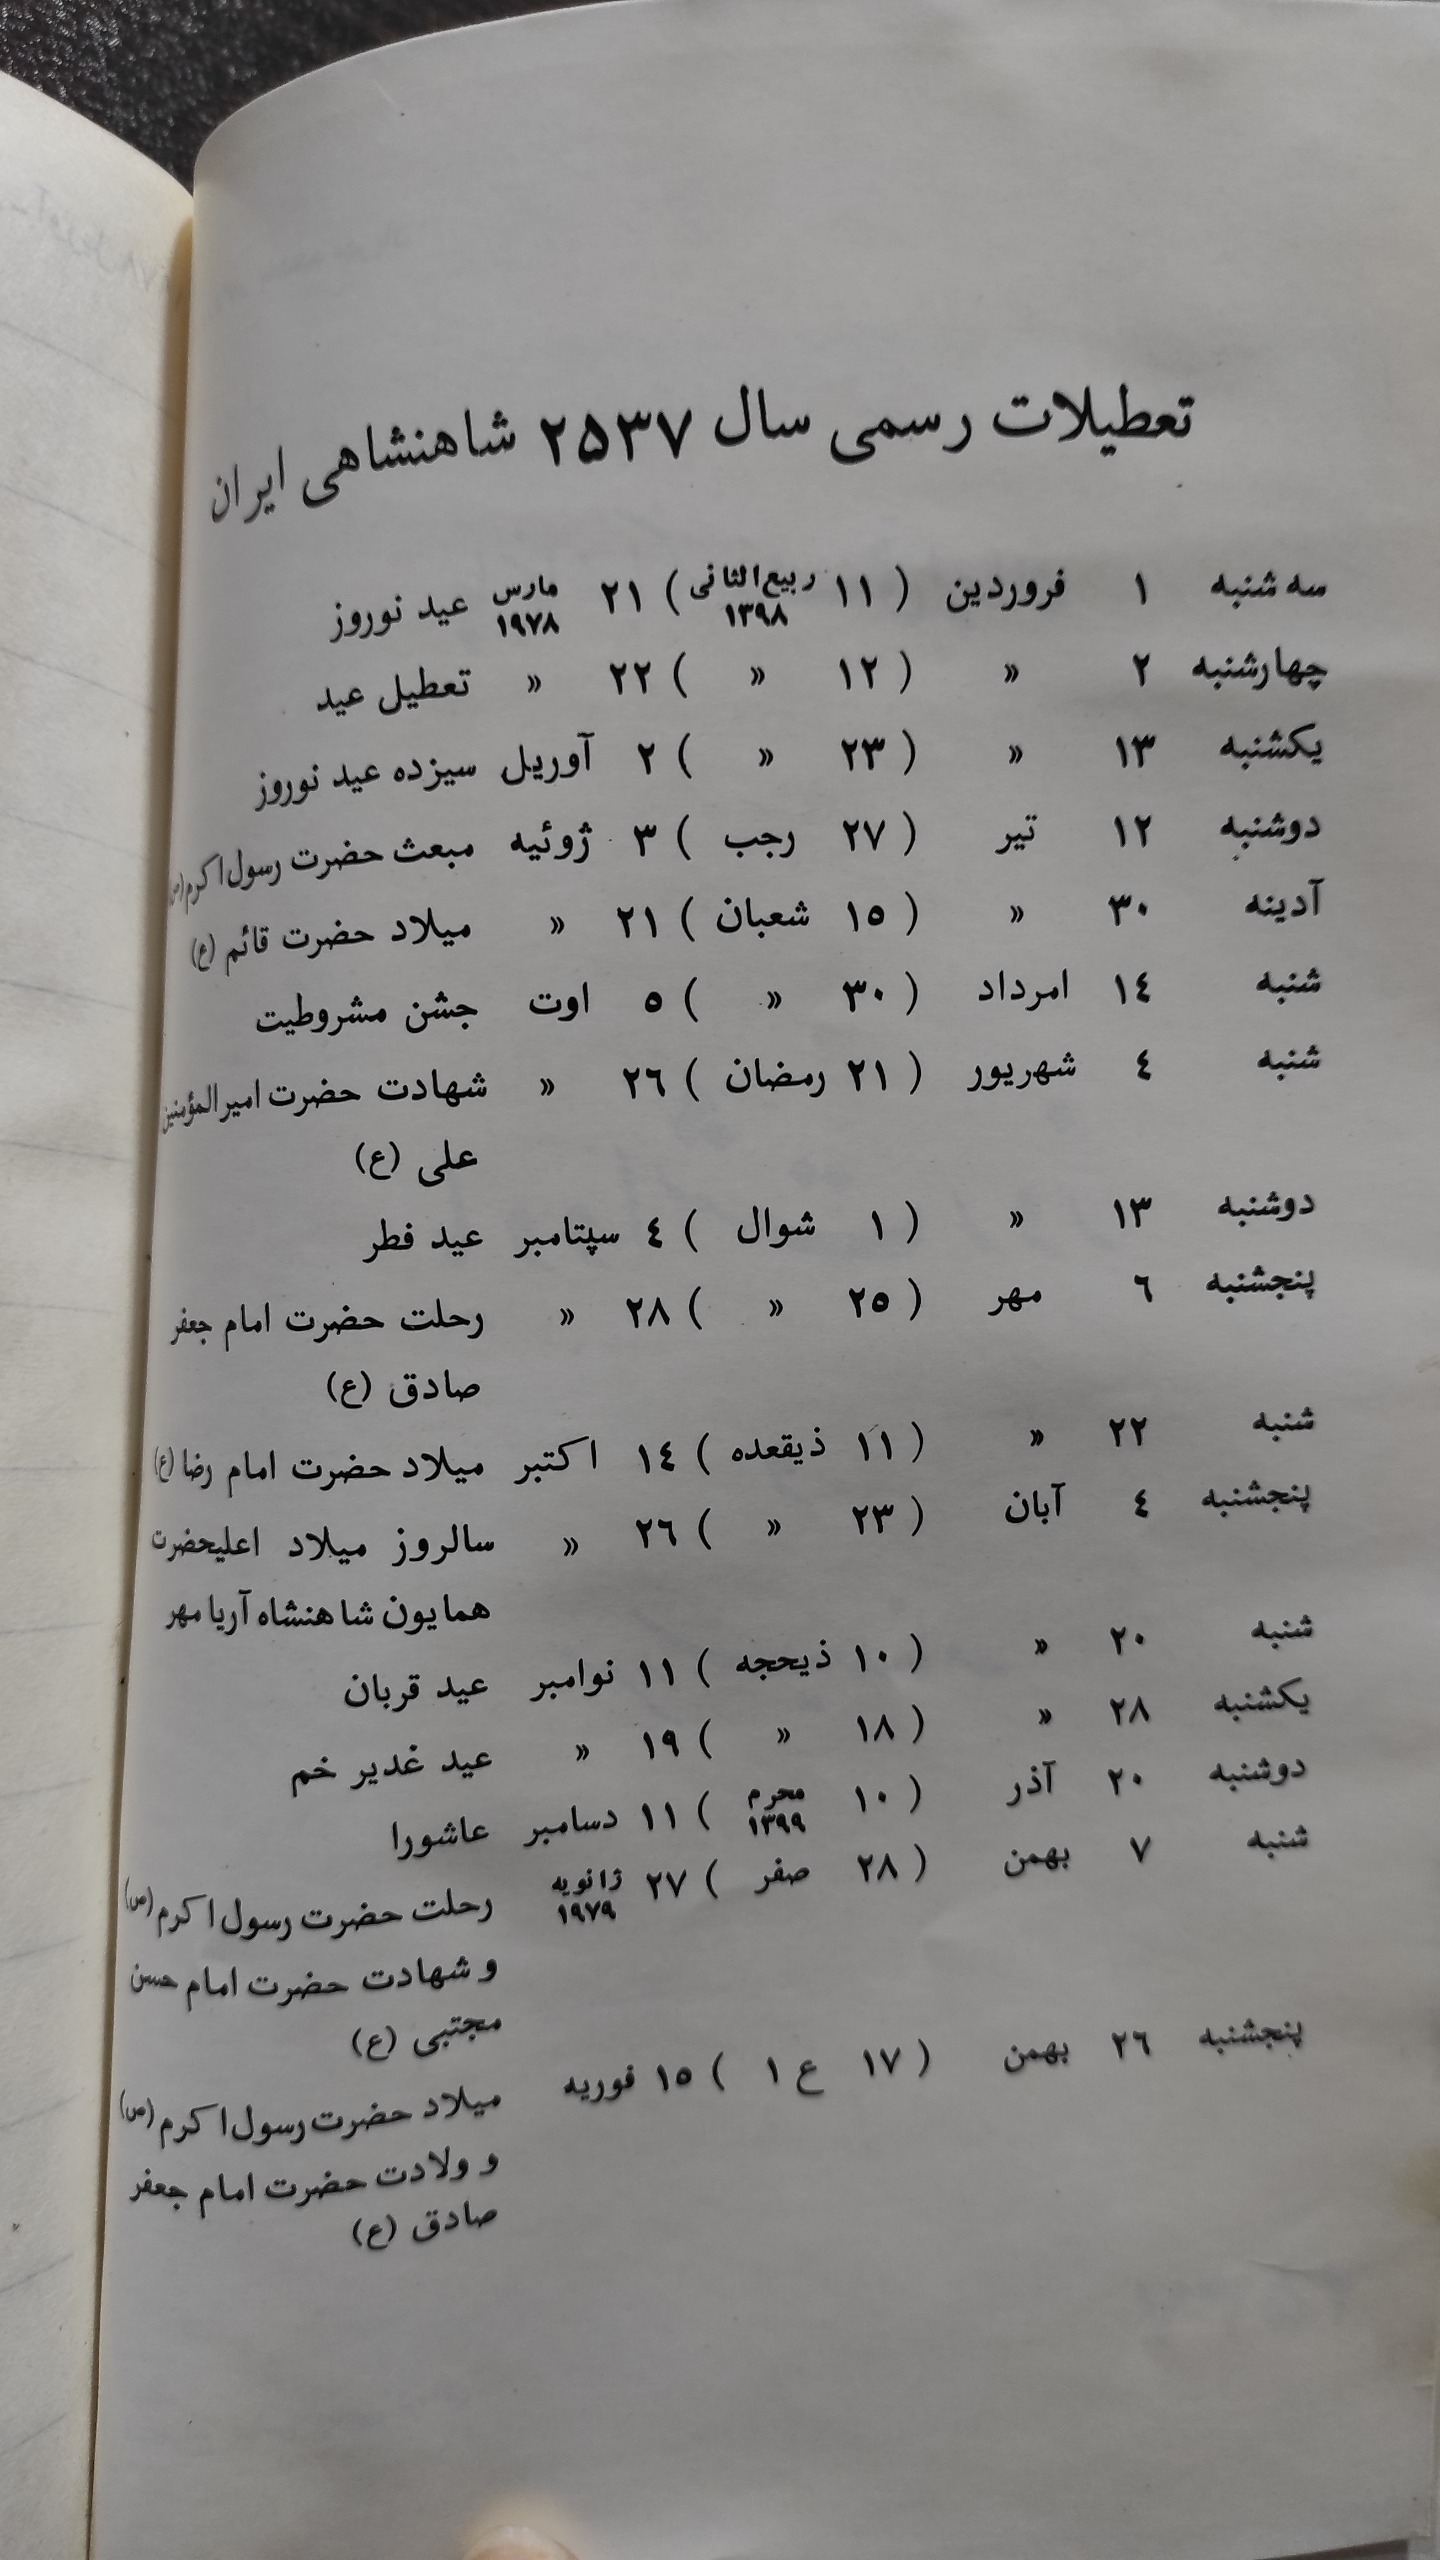 تعطیلات رسمی سال ۲۵۳۷ شاهنشاهی ایران
سه شنبه ۱ فروردین ( ۱۱ ربیع‌الثانی ۱۳۹۸ ) ۲۱ مارس ۱۹۷۸ عید نوروز
چهارشنبه ۲ « ( ۱۲ « ) ۲۲ « تعطیل عید
یکشنبه ۱۳ « ( ۲۳ « ) ۲ آوریل سیزده عید نوروز
دوشنبه ۱۲ تیر ( ۲۷ رجب ) ۳ ژوئیه مبعث حضرت رسول اکرم (ص)
آدینه ۳۰ « ( ۱۵ شعبان ) ۲۱ « میلاد حضرت قائم (ع)
شنبه ۱٤ امرداد ( ۳۰ « ) ۵ اوت جشن مشروطیت
شنبه ٤ شهریور ( ۲۱ رمضان ) ۲٦ « شهادت حضرت امیرالمؤمنین
علی (ع)
دوشنبه ۱۳ « ( ۱ شوال ) ٤ سپتامبر عید فطر
پنجشنبه ٦ مهر ( ۲۵ « ) ۲۸ « رحلت حضرت امام جعفر
صادق (ع)
شنبه ۲۲ « ( ۱۱ ذیقعده ) ۱٤ اکتبر میلاد حضرت امام رضا (ع)
پنجشنبه ٤ آبان ( ۲۳ « ) ۲٦ « سالروز میلاد اعلیحضرت
همایون شاهنشاه آریا مهر
شنبه ۲۰ « ( ۱۰ ذیحجه ) ۱۱ نوامبر عید قربان
یکشنبه ۲۸ « ( ۱۸ « ) ۱۹ « عید غدیر خم
دوشنبه ۲۰ آذر ( ۱۰ محرم ۱۳۹۹ ) ۱۱ دسامبر عاشورا
شنبه ۷ بهمن ( ۲۸ صفر ) ۲۷ ژانویه ۱۹۷۹ رحلت حضرت رسول اکرم (ص)
و شهادت حضرت امام حسن
مجتبی (ع)
پنجشنبه ۲٦ بهمن ( ۱۷ ع ۱ ) ۱۵ فوریه میلاد حضرت رسول اکرم (ص)
و ولادت حضرت امام جعفر
صادق (ع)